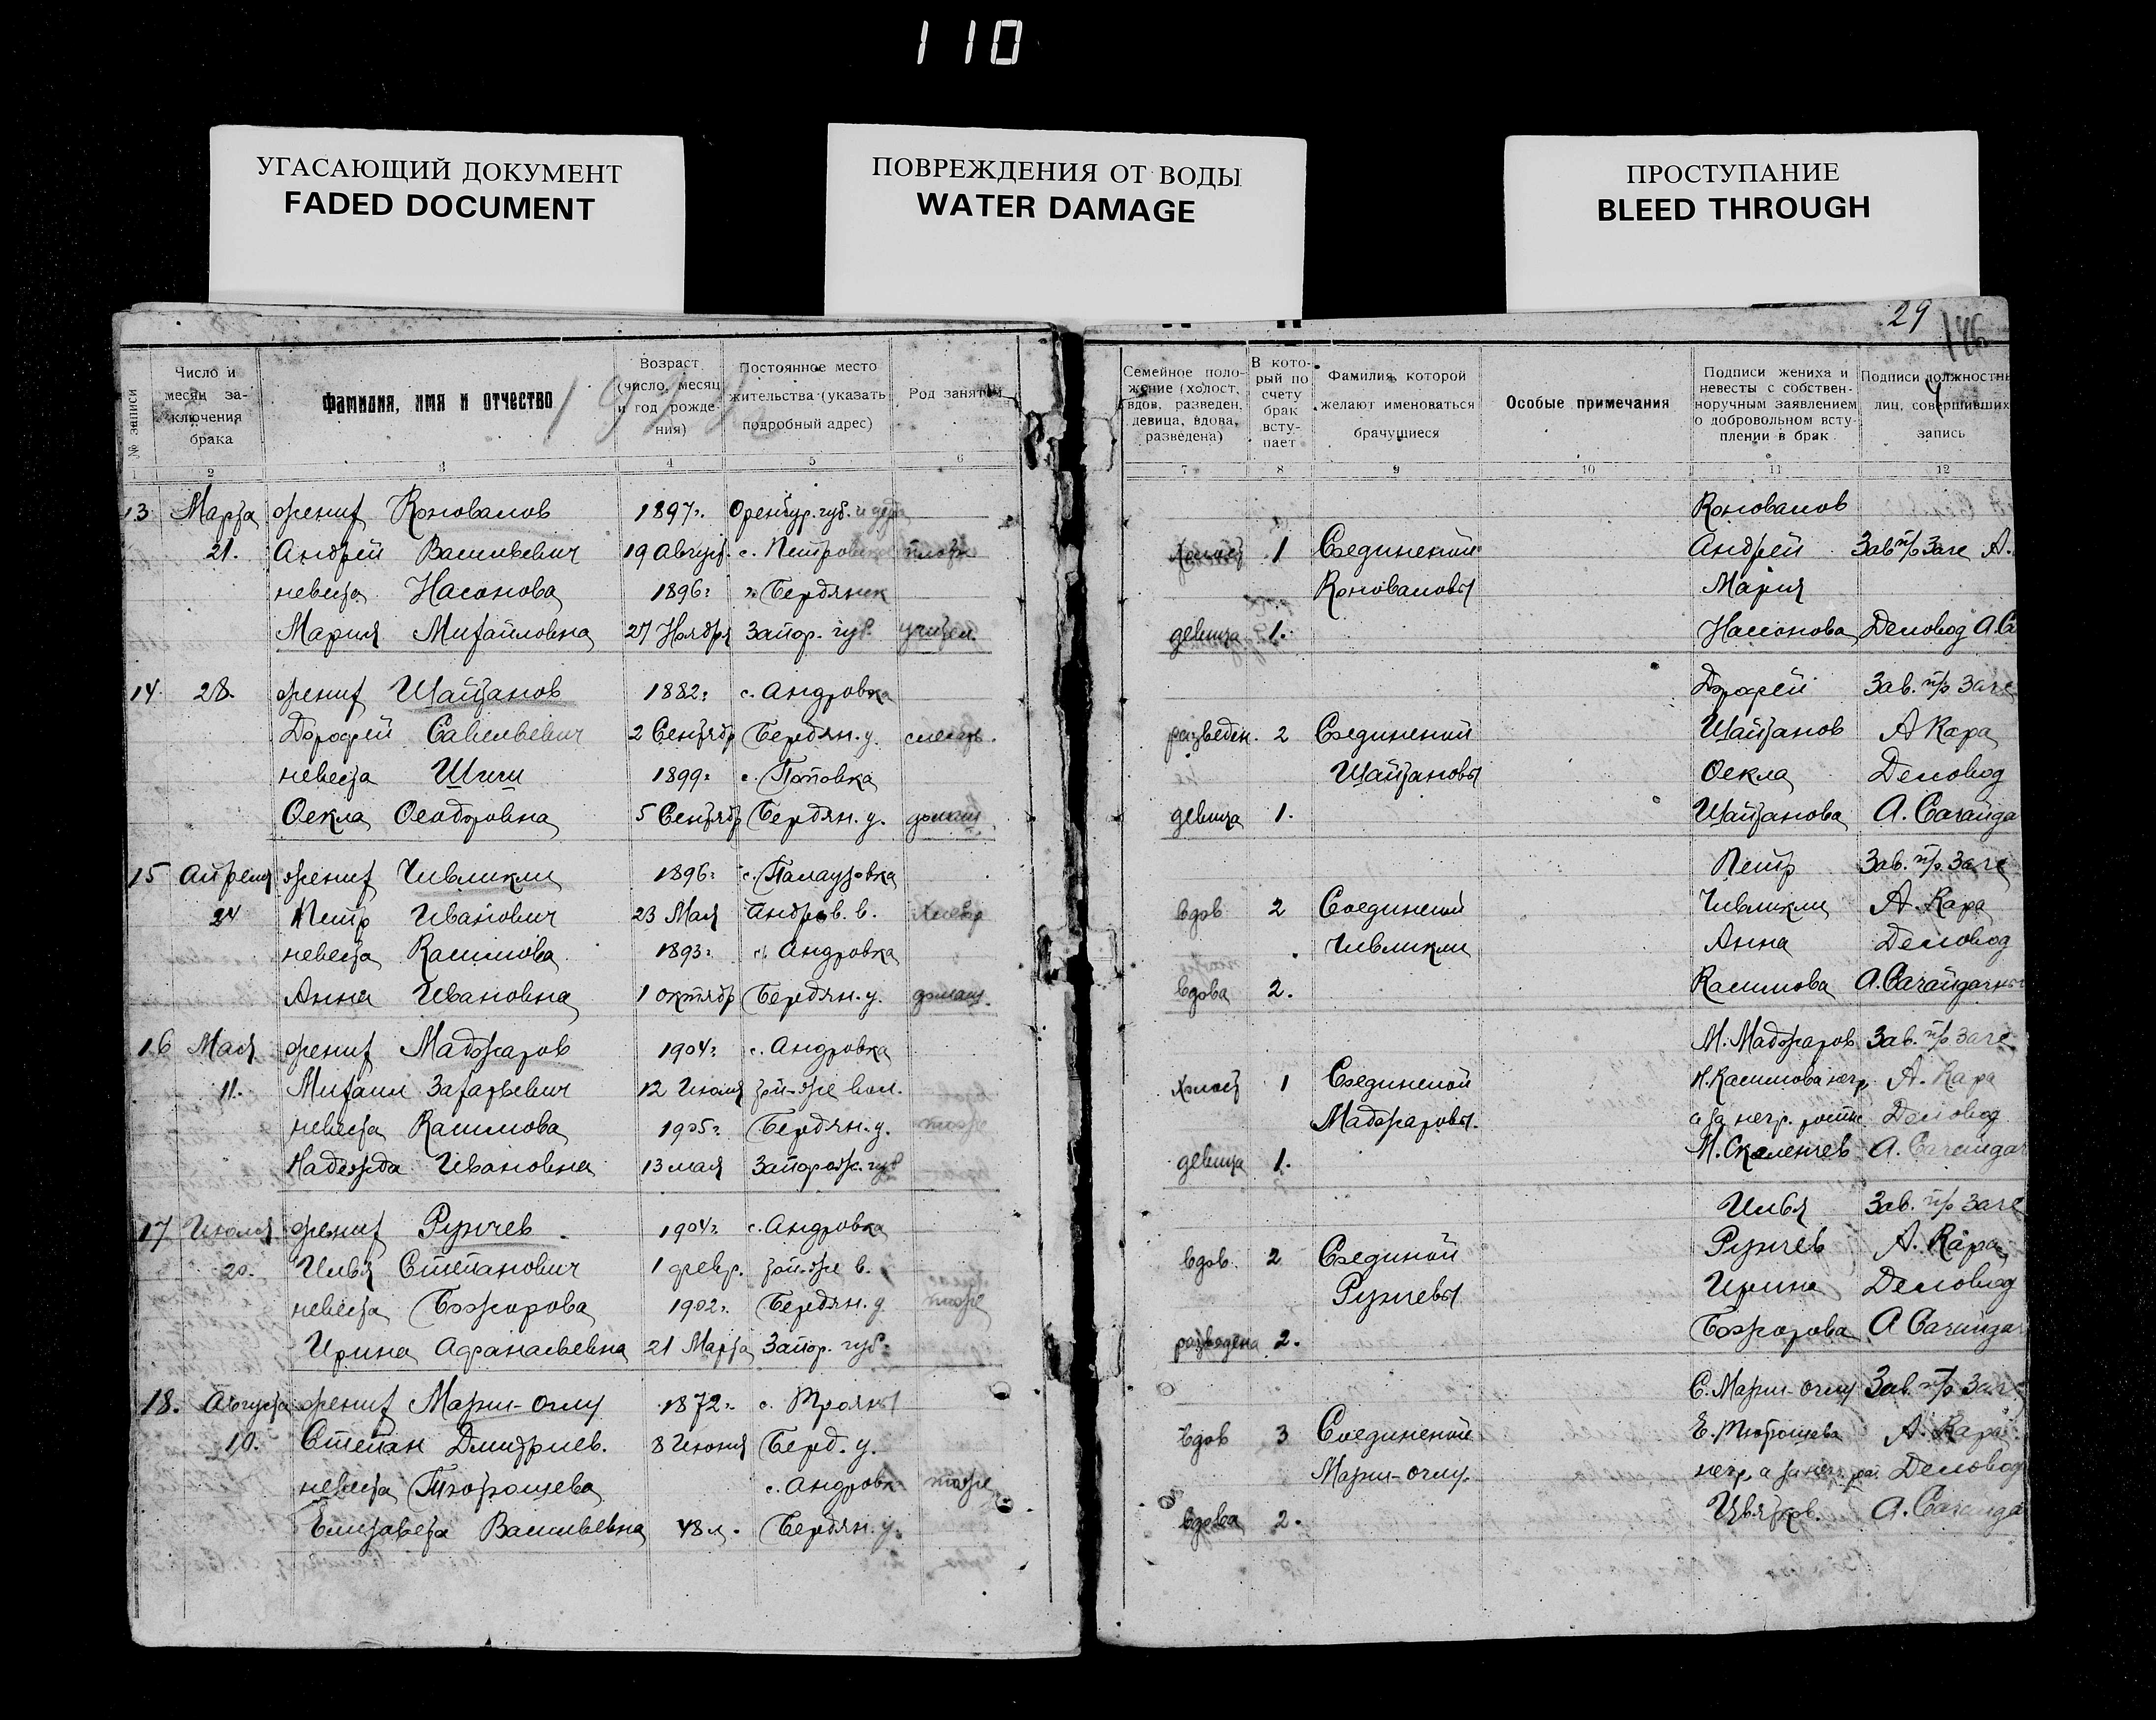 110
УГАСАЮЩИЙ ДОКУМЕНТ
FADED DOCUMENT
ПОВРЕЖДЕНИЯ ОТ ВОДЫ
WATER DAMAGE
ПРОСТУПАНИЕ
BLEED THROUGH
29
№ записи
Число и месяц заключения брака
Фамилия, имя и отчество
Возраст (число, месяц и год рождения)
Постоянное место жительства (указать подробный адрес)
Род занятий
Семейное положение (холост, вдов, разведен, девица, вдова, разведена)
В который по счету брак вступает
Фамилия, которой желают именоваться брачущиеся
Особые примечания
Подписи жениха и невесты с собственноручным заявлением о добровольном вступлении в брак
Подписи должностн лиц, совершивших запись
1 2 3 4 5 6 7 8 9 10 11 12
13 Марта жених Коновалов 1897г. Оренбур. губ. Коновалов
21. Андрей Васильевич 19 Август. с. Петровское холост 1 Соединеной Андрей Зав п/о Загс А.
невеста Насонова 1896г Бердянск Коноваловы Мария
Мария Михайловна 27 Ноября Запор. губ. учител. девица 1. Насонова Деловод А. Са
14 28. жених Шайтанов 1882г с. Андровка Дорофей Зав. п/о Загс
Дорофей Савельевич 2 Сентябр Бердян. у. слесарь. разведен. 2 Соединеной Шайтанов А Кара
невеста Шиши 1899г с. Поповка Шайтановы Фекла Деловод
Фекла Феодоровна 5 Сентябр Бердян. у. домаш. девица 1. Шайтанова А. Сагайда
15 Апреля жених Чивликли 1896г с. Палаузовка Петр Зав. п/о Загс
24 Петр Иванович 23 Мая Андров. в. хлебор вдов 2 Соединеной Чивликли А. Кара
невеста Касимова 1893г с. Андровка Чивликли Анна Деловод
Анна Ивановна 1 октябр Бердян. у. домаш. вдова 2. Касимова А. Сагайдачны
16 Мая жених Маджаров 1904г с. Андровка М. Маджаров Зав. п/о Загс
11. Михаил Захарьевич 12 Июля той-же вол. холост 1 Соединеной Н. Касимова негр. А. Кара
невеста Касимова 1905г Бердян. у. тоже Маджаровы. а за негр. Деловод
Надежда Ивановна 13 мая Запорож. губ девица 1. М. Скаленчев А. Сагайдач
17. Июля жених Рунчев 1904г с. Андровка Илья Зав. п/о Загс
20. Илья Степанович 1 февр. той-же в. вдов. 2 Соединой Рунчев А. Кара
невеста Божорова 1902г. Бердян. у. тоже Рунчевы Ирина Деловод
Ирина Афанасьевна 21 Марта Запор. губ. разведена 2. Божорова А Сагайдач
18. Августа жених Мария-оглу 1872г. с. Трояны С. Мария-оглу Зав. п/о Загс
10. Степан Дмитриев. 8 Июня Берд. у. вдов 3 Соединеной А. Кара
невеста с. Андровк тоже Мария-оглу. Деловод
Елизавета Васильевна 48 л. Бердян. у. вдова 2. А. Сагайда